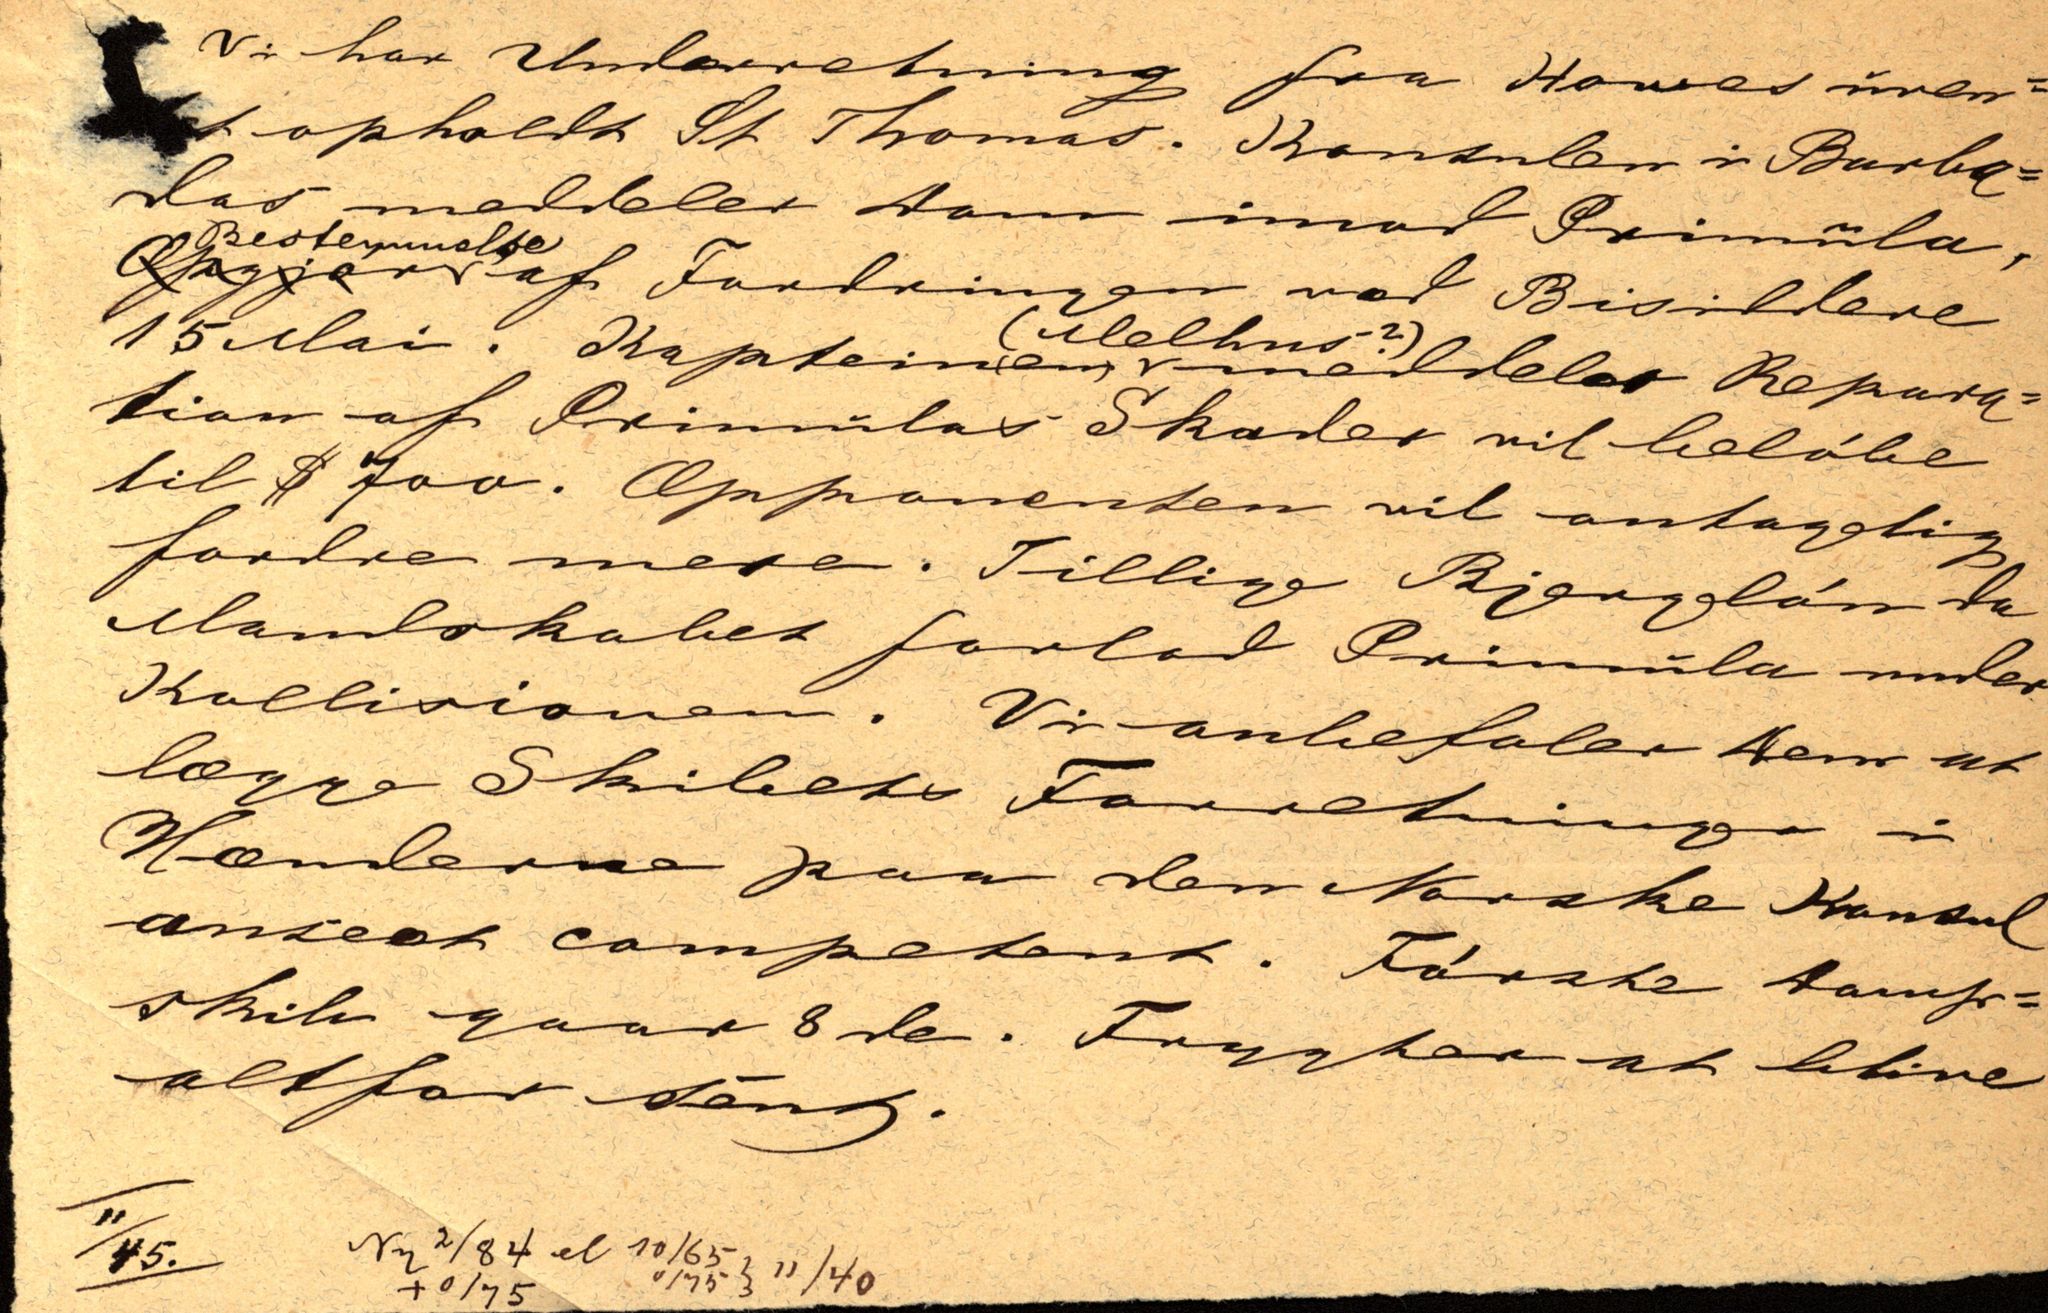 Vi har Underretning fra Hawes uven=
t opholdt St Thomas. Konsulen i Barba=
dos meddeler Dom imod Primula,
Bestemmelse
Opgjør af Fordringen ved Bisiddere
(Melhus?)
15 Mai. Kapteinen meddeler Repara=
tion af Primulas Skader vil beløbe
til $ 700. Opponenten vil antagelig
fordre mere. Tillige Bjergeløn da
Mandskabet forlod Primula under
Kollisionen. Vi anbefaler Dem at
lægge Skibets Forretninger i
Hænderne paa den Norske Konsul
anseet competent. Første Damp=
skib gaar 8de. Frygter at blive
altfor sent.
11/45.
Ny 2/84 el 10/65 } 11/40
+ 0/75 0/75